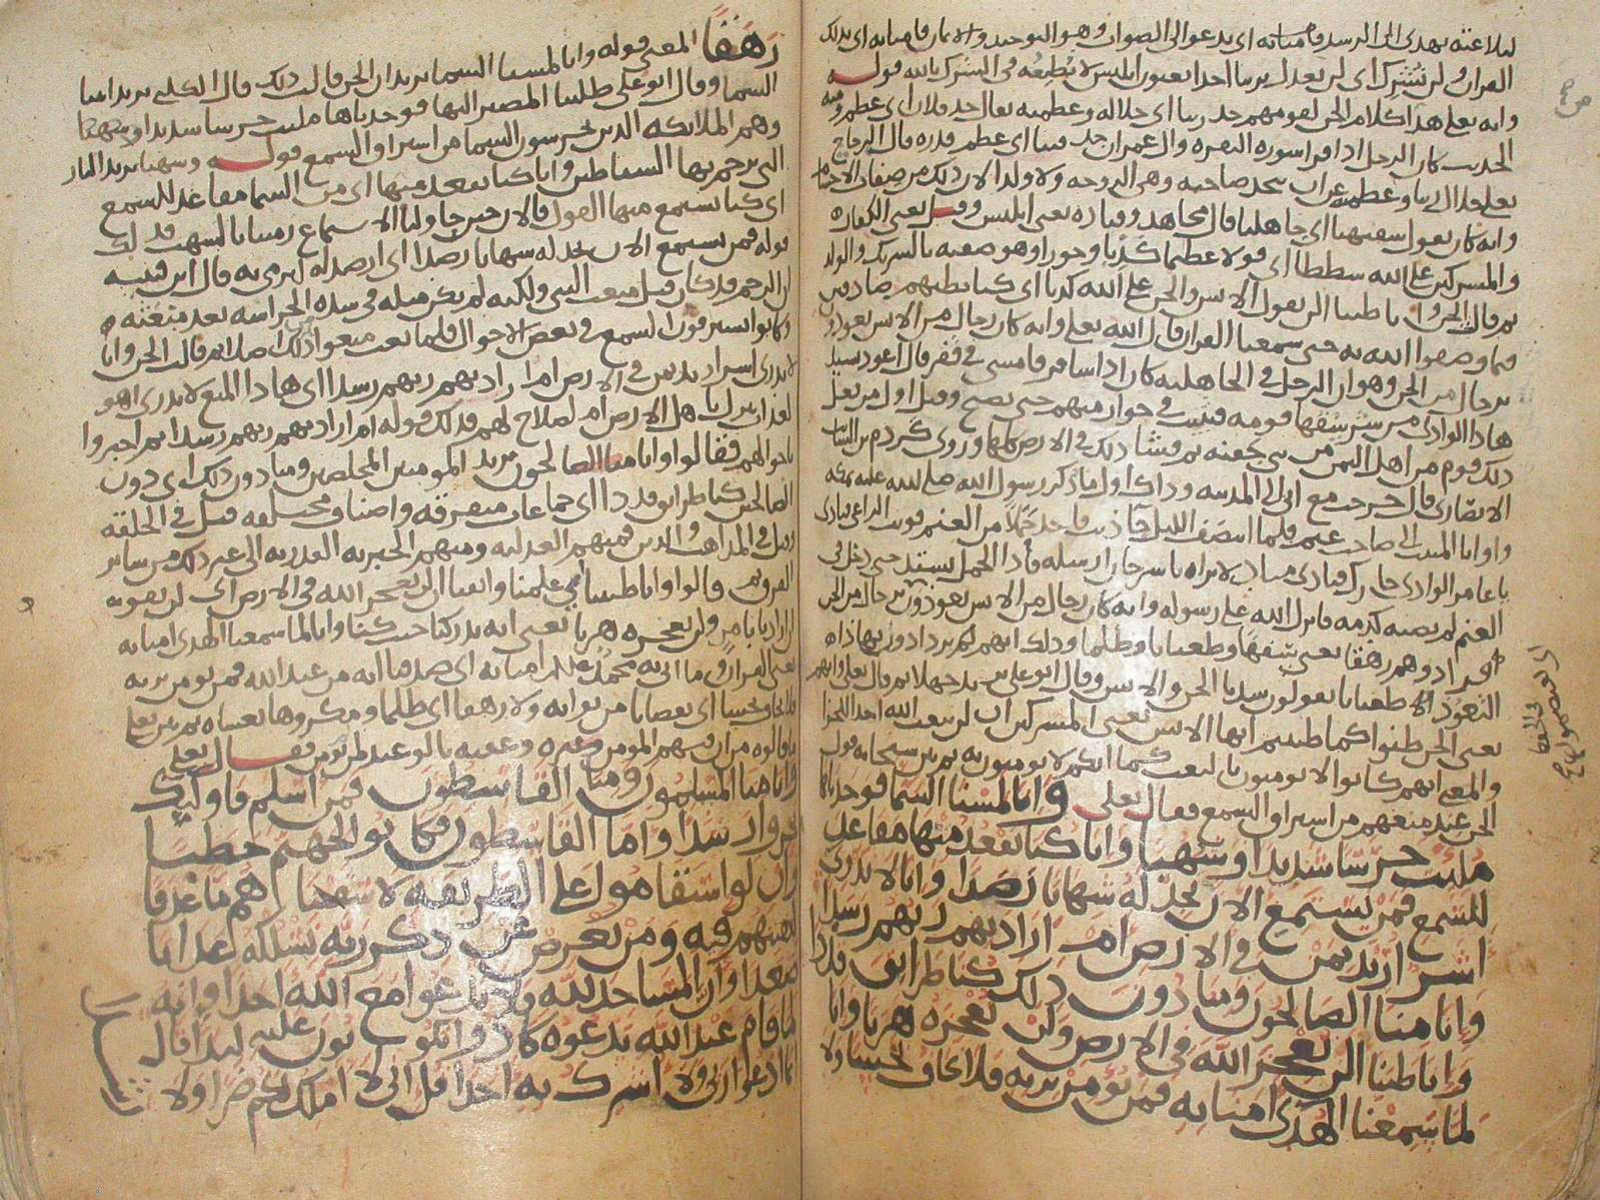 لبلاغته يهدى الى الرسد فامنا به اى يدعو الى الصواب وهو التوحيد والايمان فامنا به اى بذلك
القران ولن نشرك اى لن نعدل بربنا احدا يعنون ابليس لا نطيعه فى الشرك بالله قوله
وانه تعلى هذا كلام الجن لقومهم جد ربنا اى جلاله وعظمته يقال جد فلان اى عظم ومنه
الحديث كان الرجل اذا قرا سوره البقره وال عمران جد فينا اى عظم قدره قال الزجاج
تعلى جلال ربنا وعظمته عن ان يتخذ صاحبه وهى الزوجه ولا ولدا لان ذلك من صفات الاجسام
وانه كان يقول سفيهنا اى جاهلنا قال مجاهد وقتاده يعنى ابليس وقيل يعنى الكفاره
والمشركين على الله شططا اى قولا عظيما كذبا وجورا وهو صفته بالشريك والولد
ثم قالت الجن وانا ظننا ان لن تقول الانس والجن على الله كذبا اى كنا نظنهم صادقين
فيما وصفوا الله به حتى سمعنا القران قال الله تعلى وانه كان رجال من الانس يعوذون
برجال من الجن وهو ان الرجل فى الجاهليه كان اذا سافر فامسى فى قفر قال اعوذ بسيد
هاذا الوادى من شر سفها قومه فيبيت فى جوار منهم حتى يصبح وقيل اول من فعل
ذلك قوم من اهل اليمن من بنى حنيفه ثم فشا ذلك فى الارض كلها وروى كردم بن السايب
الانصارى قال خرجت مع ابى الى المدينه وذاك اول ما ذكر رسول الله صلى الله عليه بمكه
واوانا المبيت الى صاحب غنم فلما انتصف الليل جا ذيب فاخذ حملا من الغنم فوثب الراعى فنادى
يا عامر الوادى جارك فنادى مناد لا نراه يا سرحان ارسله فاذا الحمل يشتد حتى دخل فى
الغنم لم يصبه كدمه فانزل الله على رسوله وانه كان رجال من الانس يعوذون برجال من الجن
فزادوهم رهقا يعنى سفها وطغيانا وظلما وذلك انهم لهم يزدادون بهاذاه
التعوذ الا طغيانا يقولون سدنا الجن والانس وقال ابو على نزيد جهلا ثم قال تعلى وانهم
يعنى الجن ظنوا كما ظننتم ايها الانس يعنى المشركين ان لن يبعث الله احدا الجزا
والمعنى انهم كانوا لا يومنون بالبعث كما انكم لا تومنون به ثم بين سبحانه قول
الجن عند منعهم من استراق السمع فقال تعلى وانا لمسنا السما فوجدناها
ملئت حرسا شديدا وشهبا وانا كنا نقعد منها مقاعد
للسمع فمن يستمع الان يجد له شهابا رصدا وانا لا ندرى
اشر اريد بمن فى الارض ام اراد بهم ربهم رشدا
وانا منا الصالحون ومنا دون ذلك كنا طرائق قددا
وانا ظننا ان لن نعجز الله فى الارض ولن نعجزه هربا وانا
لما سمعنا الهدى امنا به فمن يؤمن بربه فلا يخاف بخسا ولا
رهقا المعنى قوله وانا لمسنا السما يريد ان الجن قالت ذلك قال الكلبى يريد اتينا
السما وقال ابو على طلبنا المصير اليها فوجدناها ملئت حرسا شديدا وشهبا
وهم الملائكه الذين يحرسون السما من استراق السمع قوله وشهبا يريد النار
التى يرجم بها الشياطين وانا كنا نقعد منها اى من السما مقاعد للسمع
اى كنا نستمع منها القول فالان حين حاولنا الاستماع رمينا بالشهب فذلك
قوله فمن يستمع الان يجد له شهابا رصدا اى ارصد له ليرمى به قال ابن قتيبه
ان الرجم قد كان قبل مبعث النبى ولكنه لم يكن مثله فى شده الحراسه بعد مبعثه
وكانوا يسترقون السمع فى بعض الاحوال فلما بعث منعوا ذلك اصلا ثم قالت الجن وانا
لا ندرى اشر اريد بمن فى الارض ام اراد بهم ربهم رشدا اى هاذا المنع لا ندرى اهو
لعذاب نزل باهل الارض ام لصلاح لهم فذلك قوله ام اراد بهم ربهم رشدا ثم اخبروا
باحوالهم فقالوا وانا منا الصالحون يريد المومنين المخلصين ومنا دون ذلك اى دون
الصالحين كنا طرائق قددا اى جماعات متفرقه واصناف مختلفه قيل فى الخلقه
وقيل فى المذاهب والدين فمنهم العدليه ومنهم الجبريه القدريه الى غير ذلك من ساير
الفرق ثم قالوا وانا ظننا اى علمنا وايقنا ان لن نعجز الله فى الارض اى لن نفوته
ان اراد بنا امر ولن نعجزه هربا يعنى انه يدركنا حيث كنا وانا لما سمعنا الهدى امنا به
يعنى القران وما اتى به محمد عللم امنا به اى صدقنا انه من عند الله فمن يومن بربه
فلا يخاف بخسا اى نقصانا من ثوابه ولا رهقا اى ظلما ومكروها يغشاه ثم بين تعلى
ما قالوه من ان فيهم المومن وغيره وعقبه بالوعيد لمن يومن فقال تعلى
وانا منا المسلمون ومنا القاسطون فمن اسلم فاوليك
تحروا رشدا واما القاسطون فكانوا لجهنم حطبا
وان لو استقاموا على الطريقه لاسقيناهم ما غدقا
لنفتنهم فيه ومن يعرض عن ذكر ربه نسلكه عذابا
صعدا وان المساجد لله فلا تدعوا مع الله احدا وانه
لما قام عبد الله يدعوه كادوا يكونون عليه لبدا قال
انما ادعوا ربى ولا اشرك به احدا قل انى لا املك لكم ضرا ولا